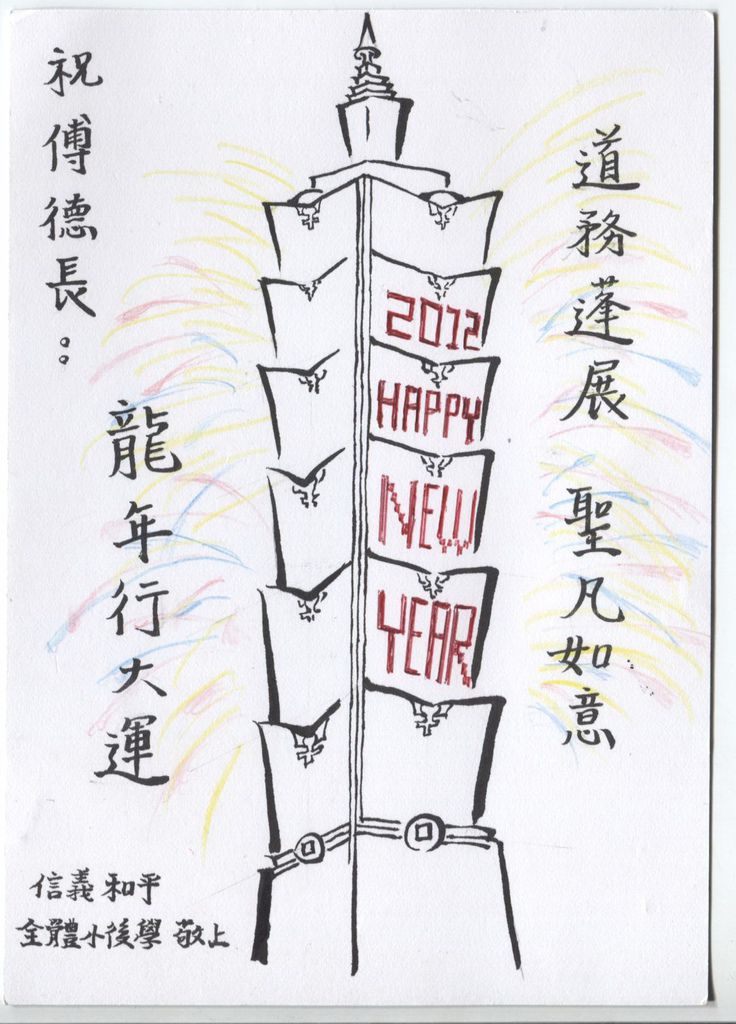 祝傅德長：
龍年行大運
道務蓬展 聖凡如意
2012
HAPPY
NEW
YEAR
信義和平
全體小後學 敬上